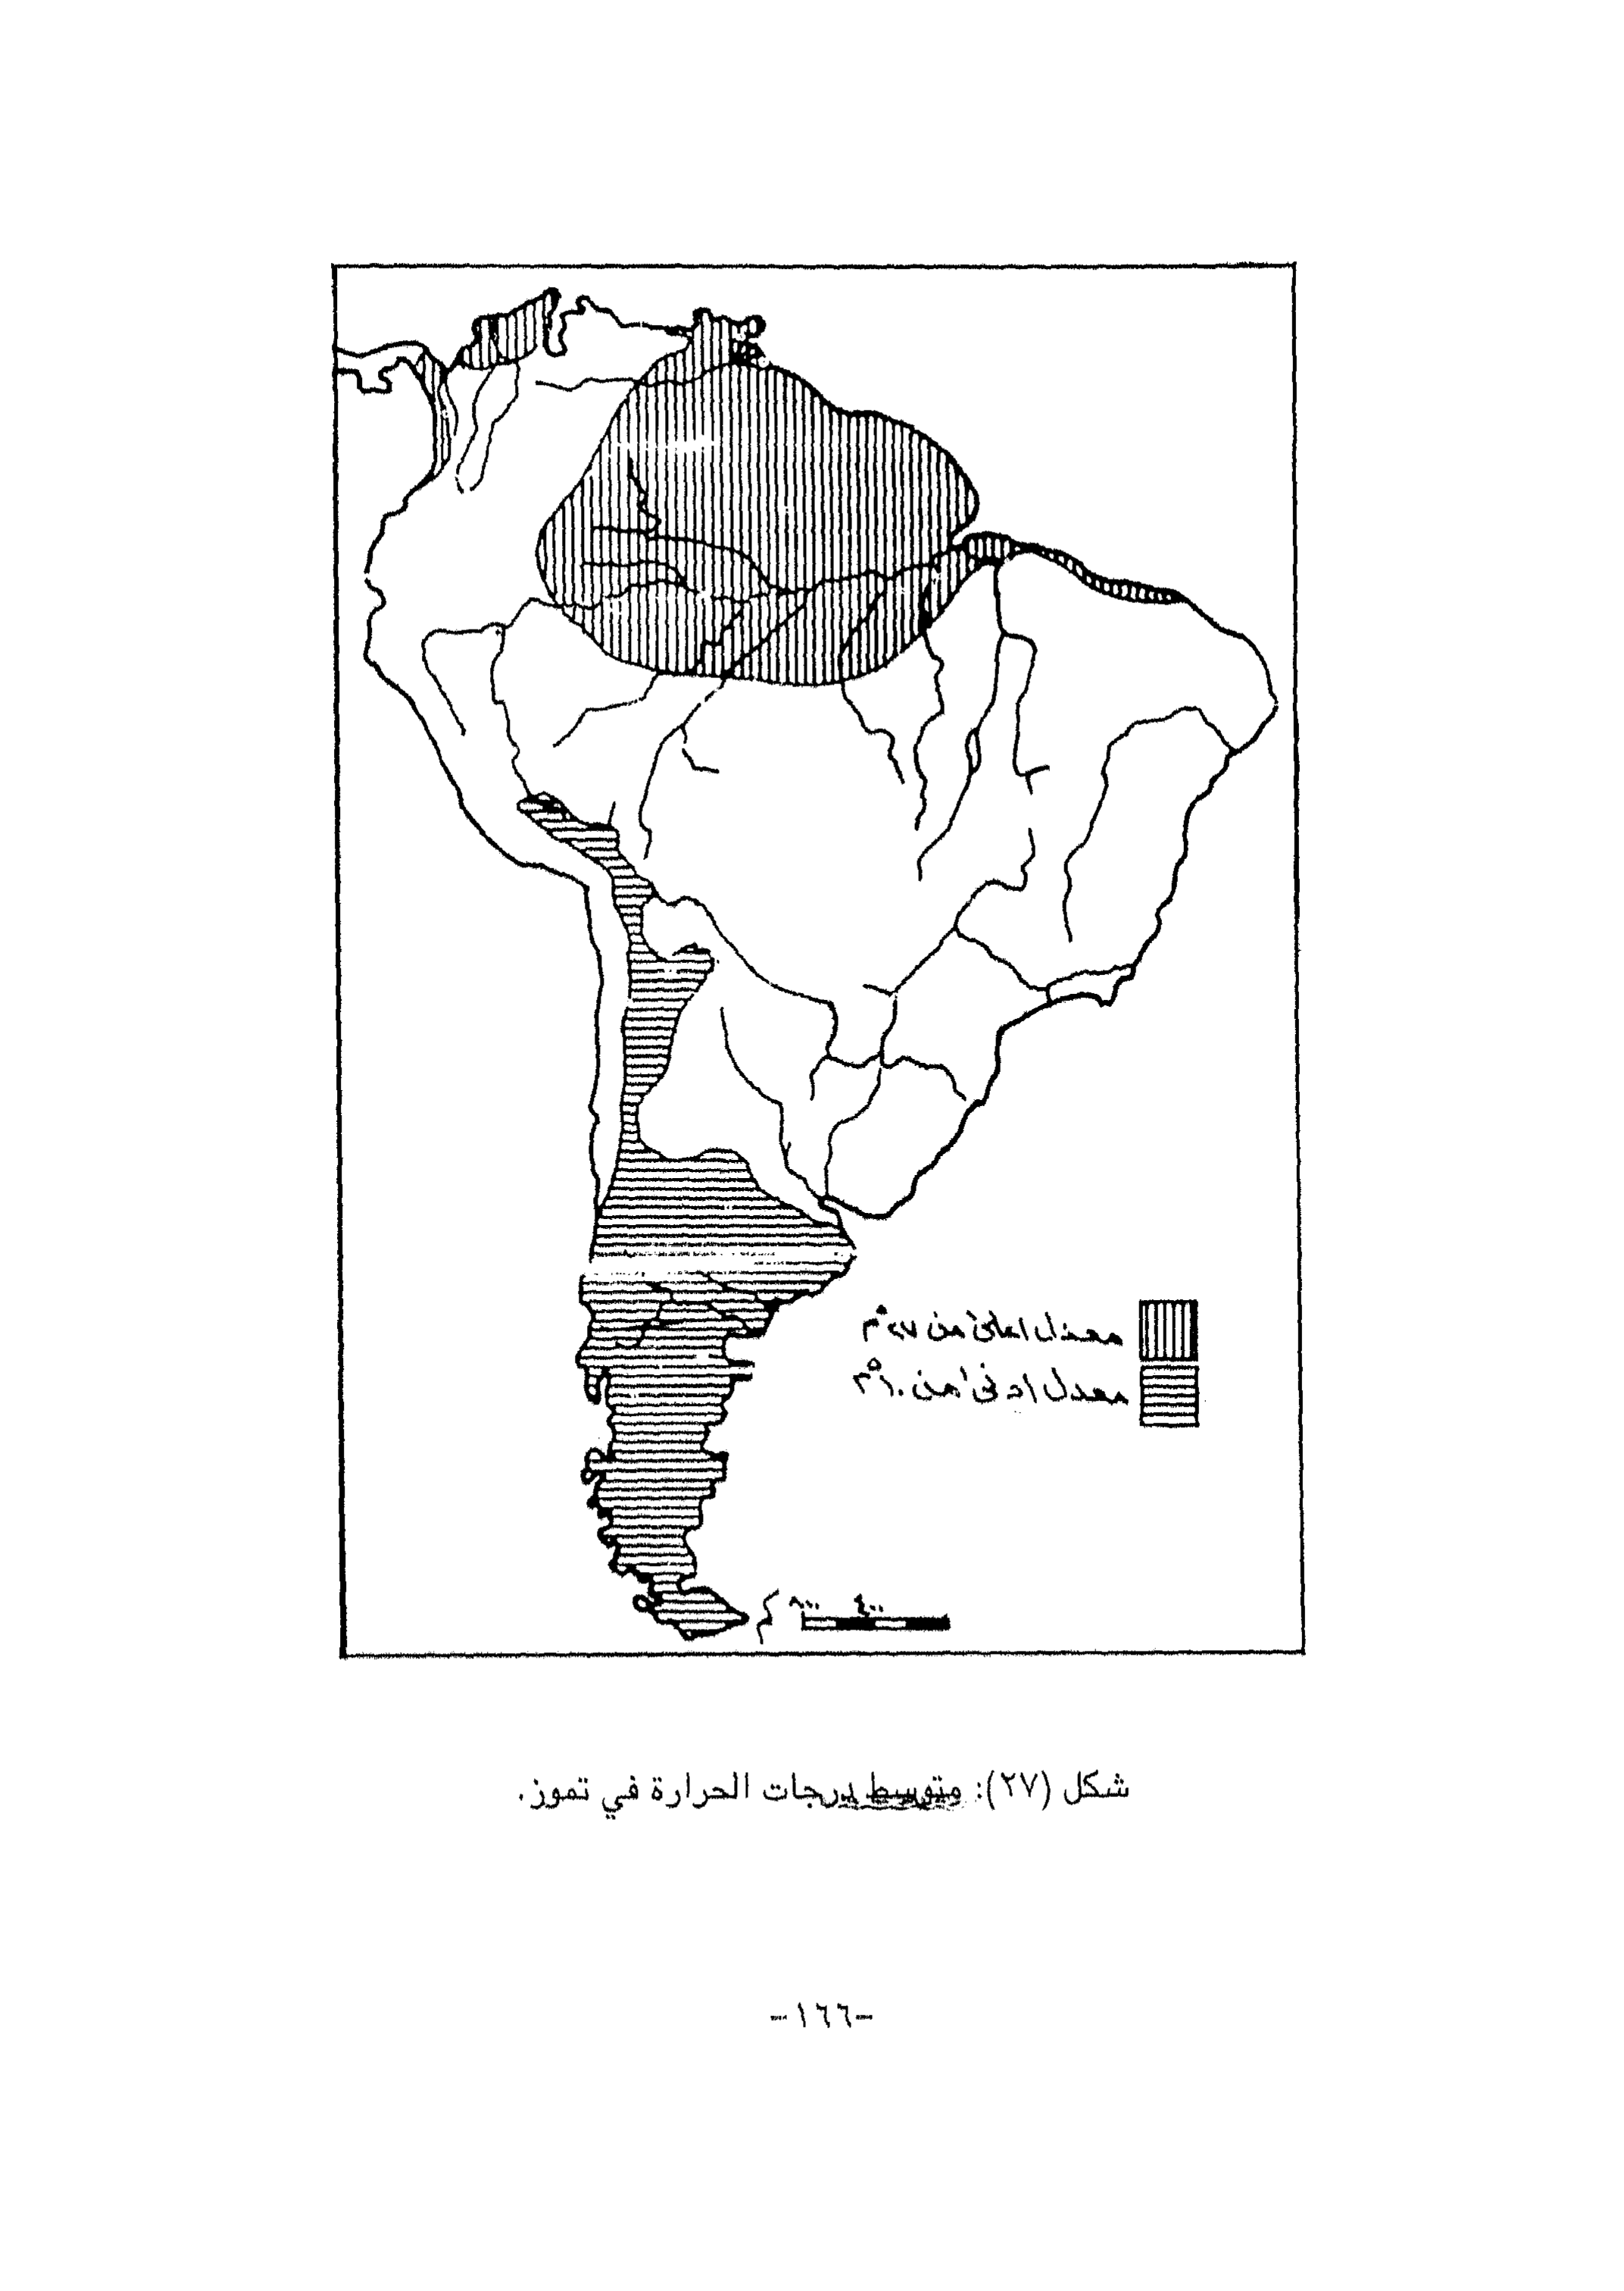 معدل اعلى من ٢٧°م
معدل ادنى من ١٠°م
٨٠٠ ٤٠٠
كم
شكل (٢٧): متوسط درجات الحرارة في تموز.
-١٦٦-